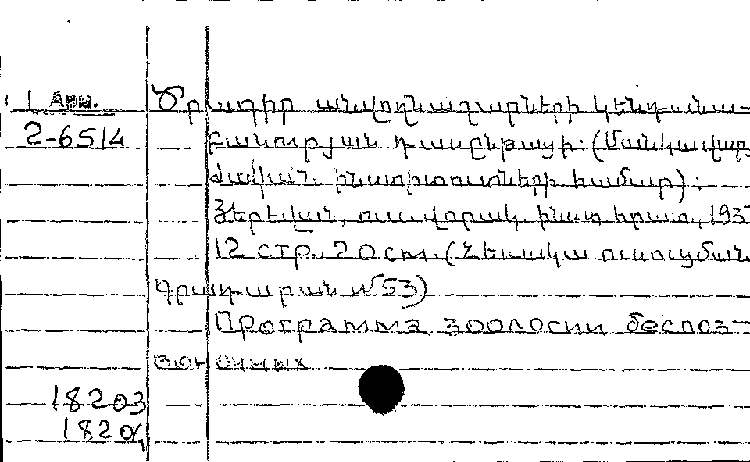 1 Арм.
2-6514
Ծրագիր անվողնաշարների կենդանա-
բանության դասընթացի: (Մանկավար
ժական ինստիտուտների համար):
Յերեվան, ուս. վորակ. ինստ. հրատ., 193
12 стр. 20см. (Հեռակա ուսուցման
գրադարան №53)
Программа зоолосии беспоз-
воночных
18203
1820